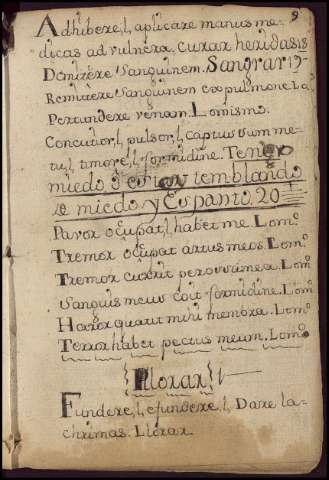 9
Adhibere, l, aplicare manus me-
dicas ad vulnera. curar heridas 18
Demirere sanguinem. Sangrar 19
Remitere sanguinem ex pulmone. la
Percundere venam. Lo mismo.
Concutior, l, pulsor, l, captus sum me-
tu, l, timore, l, formidine. Tengo
miedo estoy temblando
de miedo y Espanto. 20
Pavor ocupat, l, habet me. Lo mo
Tremor ocupat artus meos. Lo mo
Tremor currit per ossa mea. Lo mo
Sanguis meus coit formidine. Lo mo
Horor quatit mihi membra. Lo mo
Terror habet pectus meum. Lo mo
Llorar
Fundere, l, efundere, l, Dare la-
chrimas. Llorar